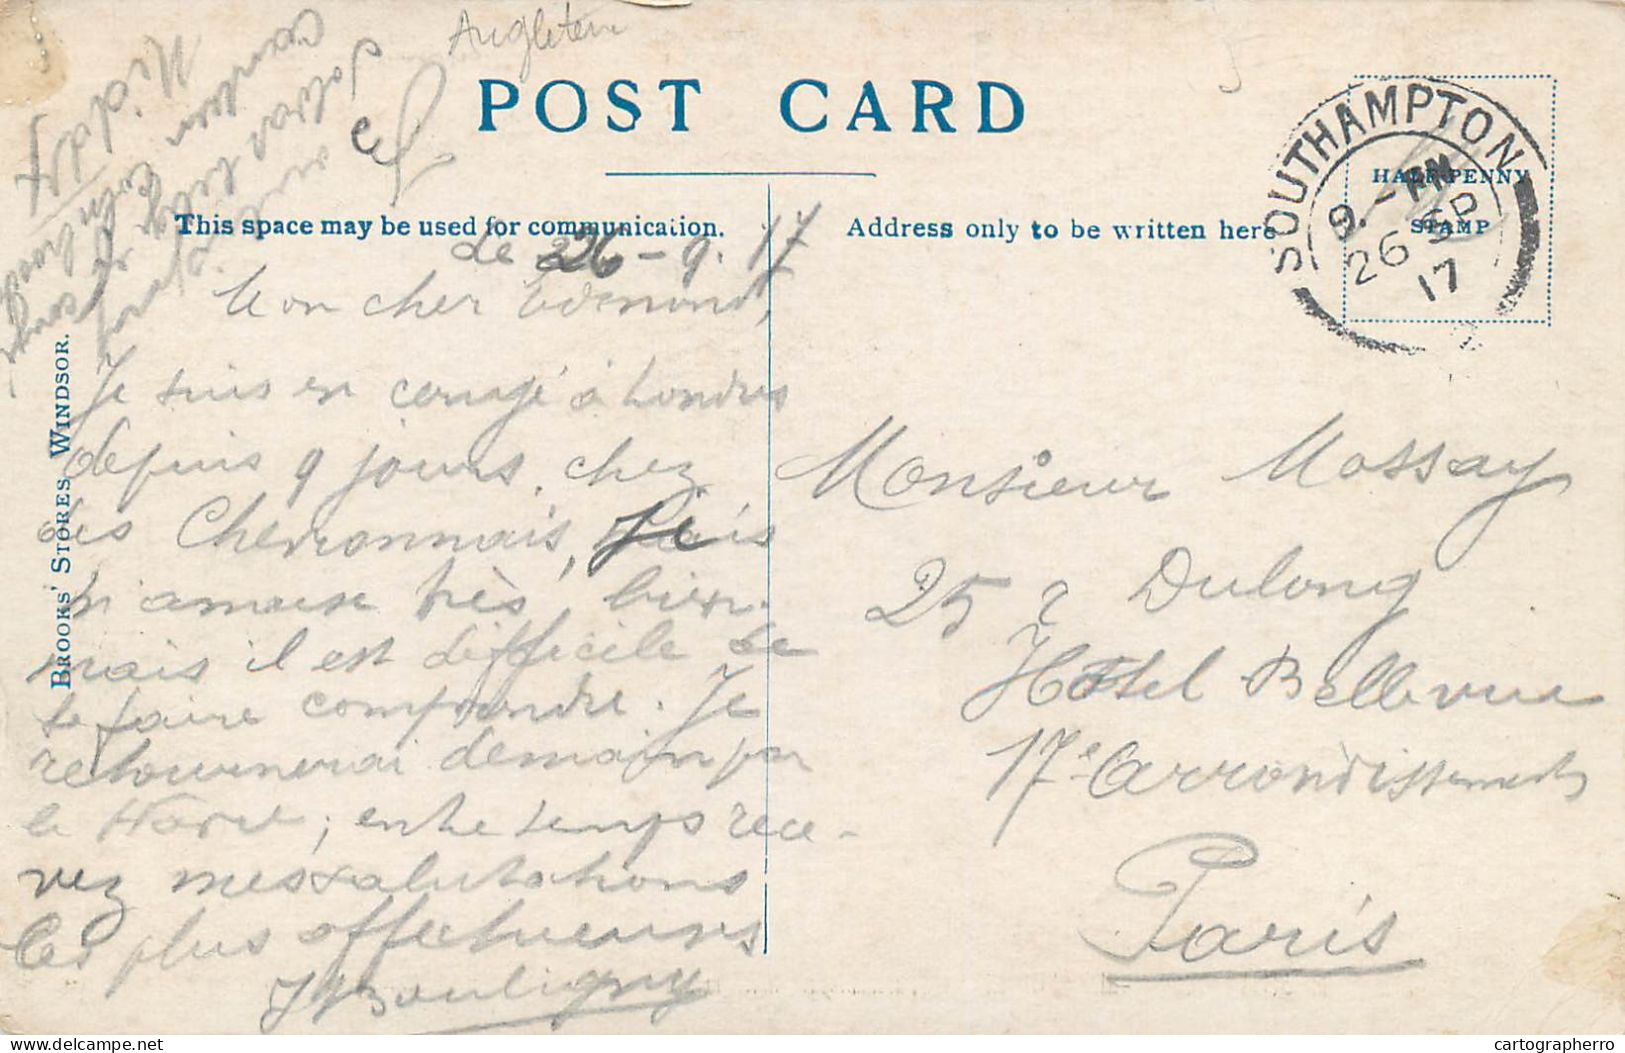 Angleterre
POST CARD
This space may be used for communication.
Address only to be written here
HALF PENNY
STAMP
SOUTHAMPTON
9.- PM
26 SP
17
BROOKS' STORES WINDSOR.
de 26-9.17
Mon cher Edmond,
Je suis en congé à Londres
depuis 9 jours, chez
des Chevronnais, Je
m'amuse très bien
mais il est difficile de
se faire comprendre. Je
retournerai demain par
le Havre; entre temps rece-
vez mes salutations
les plus affectueuses
Monsieur Mossay
25 r Dulong
Hôtel Bellevue
17e Arrondissements
Paris
delcampe.net
cartographerro